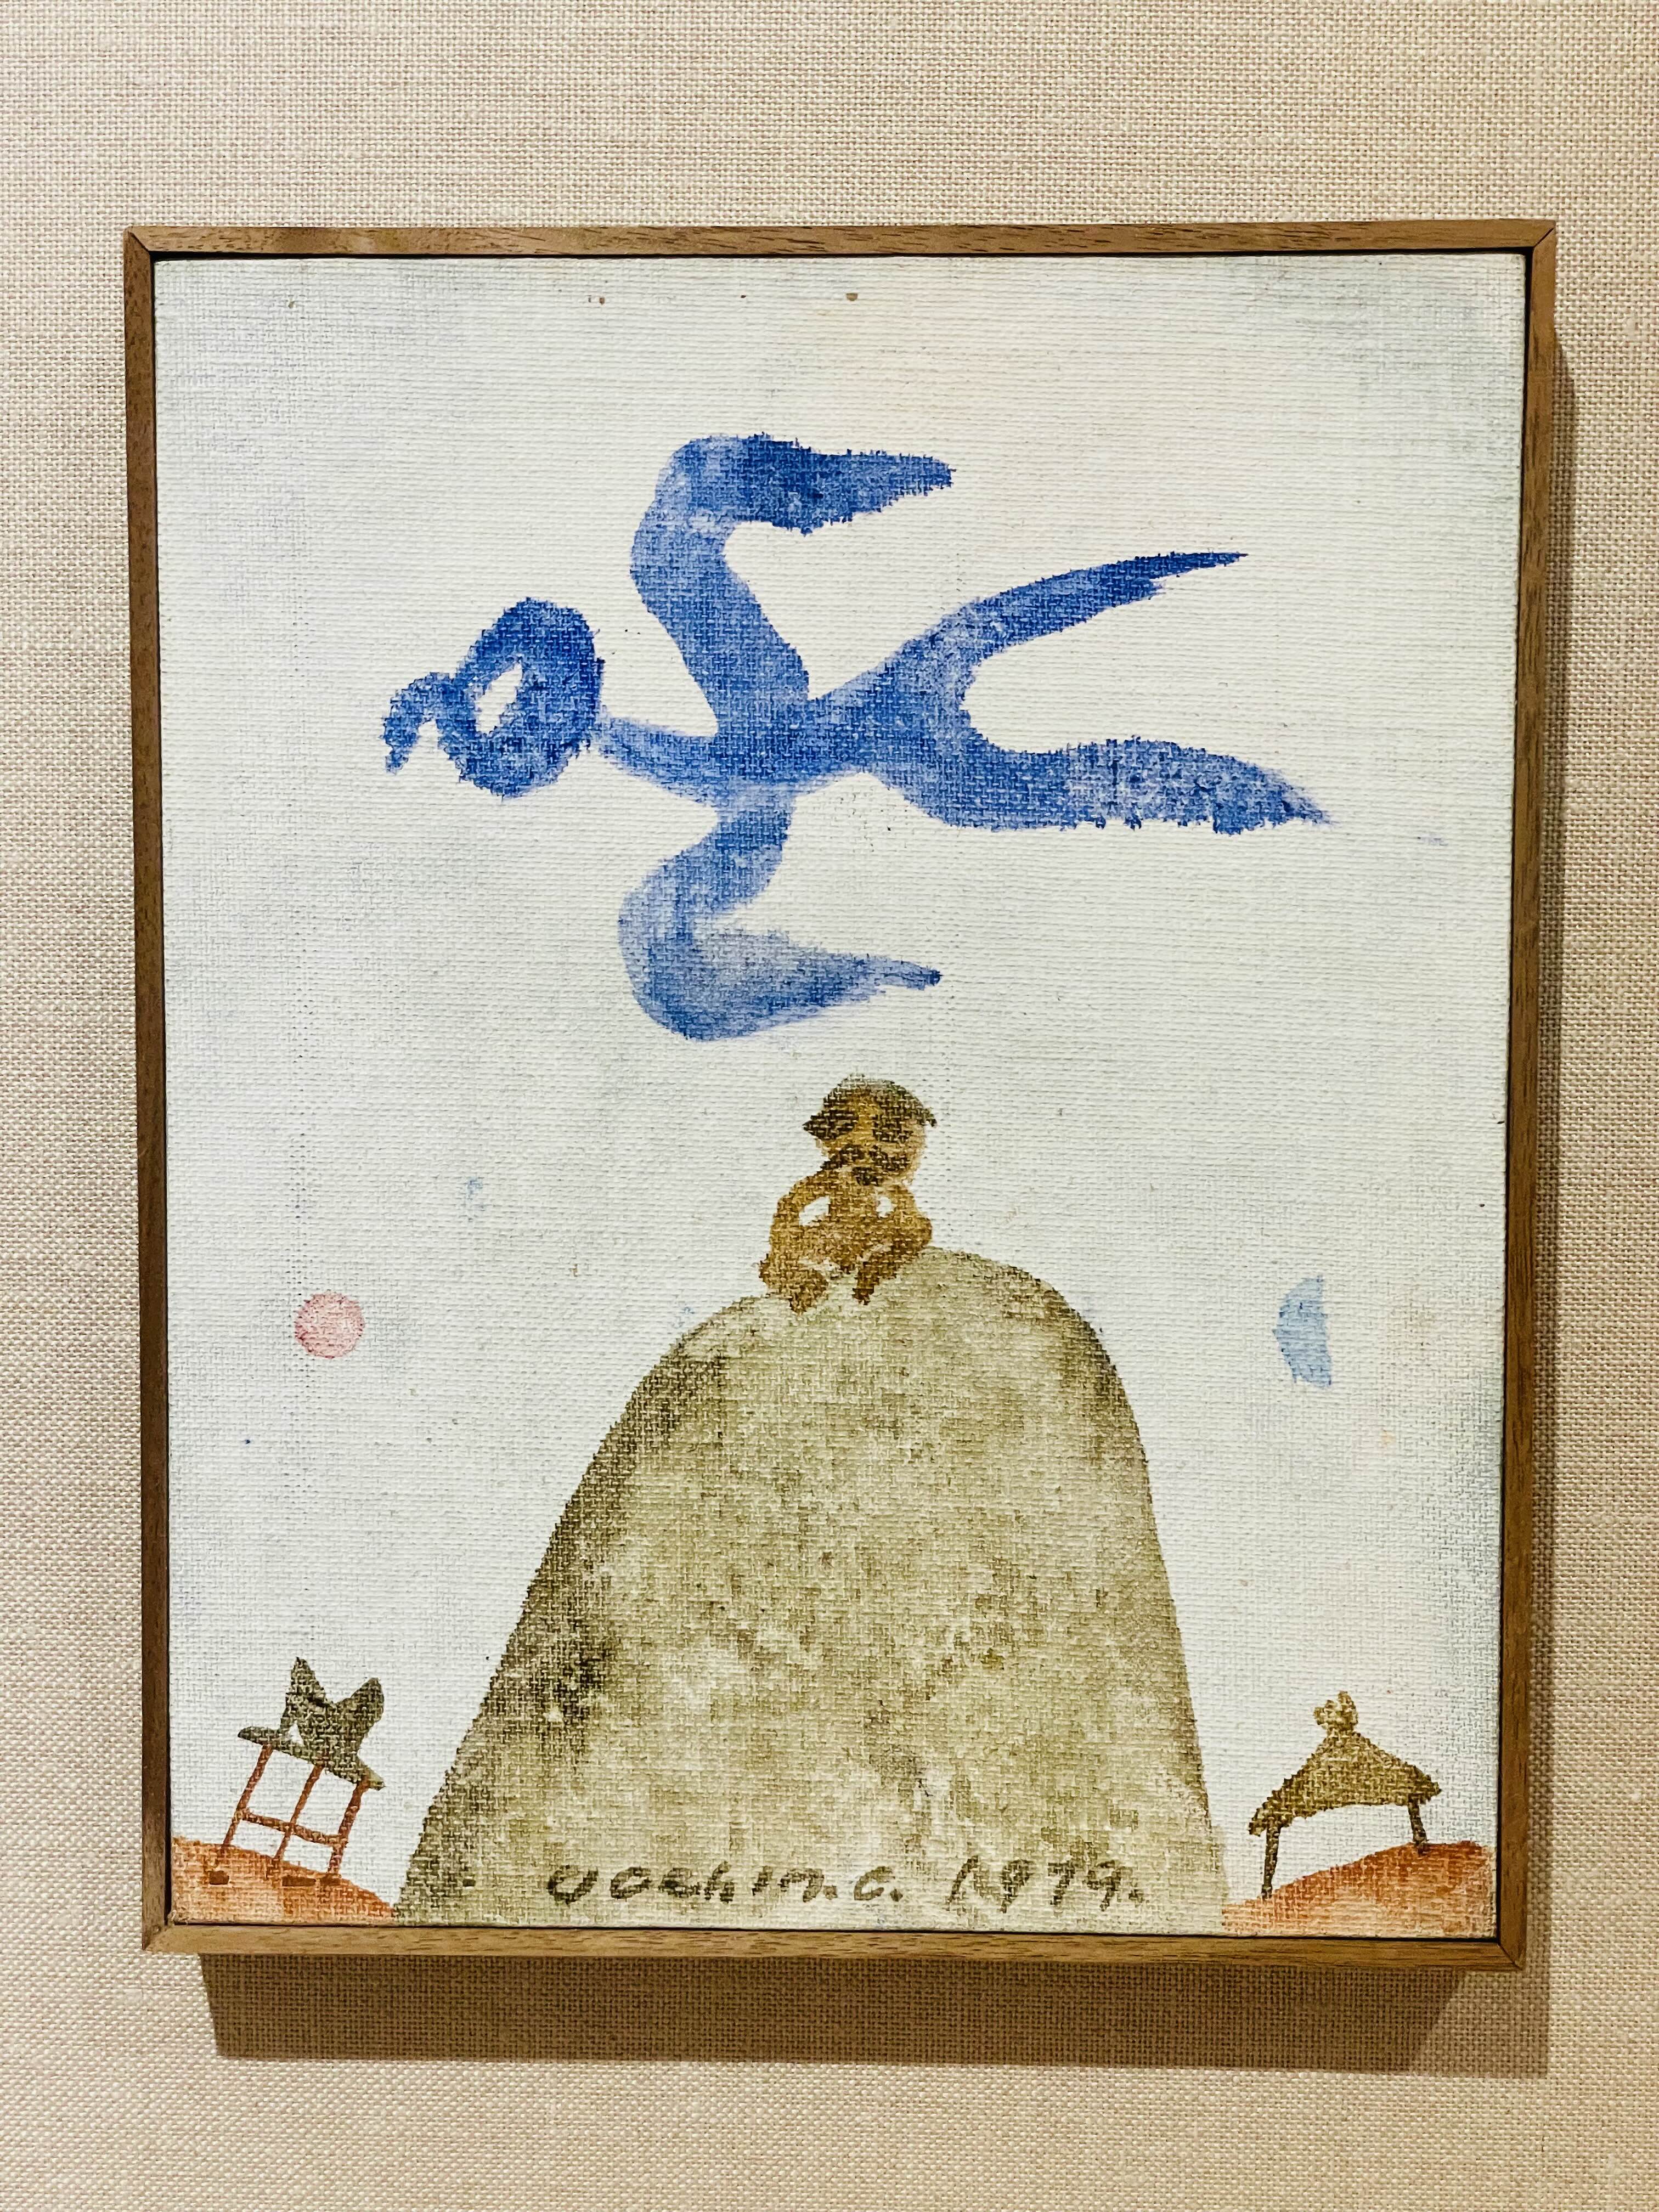 UCCHIN.C. 1979.